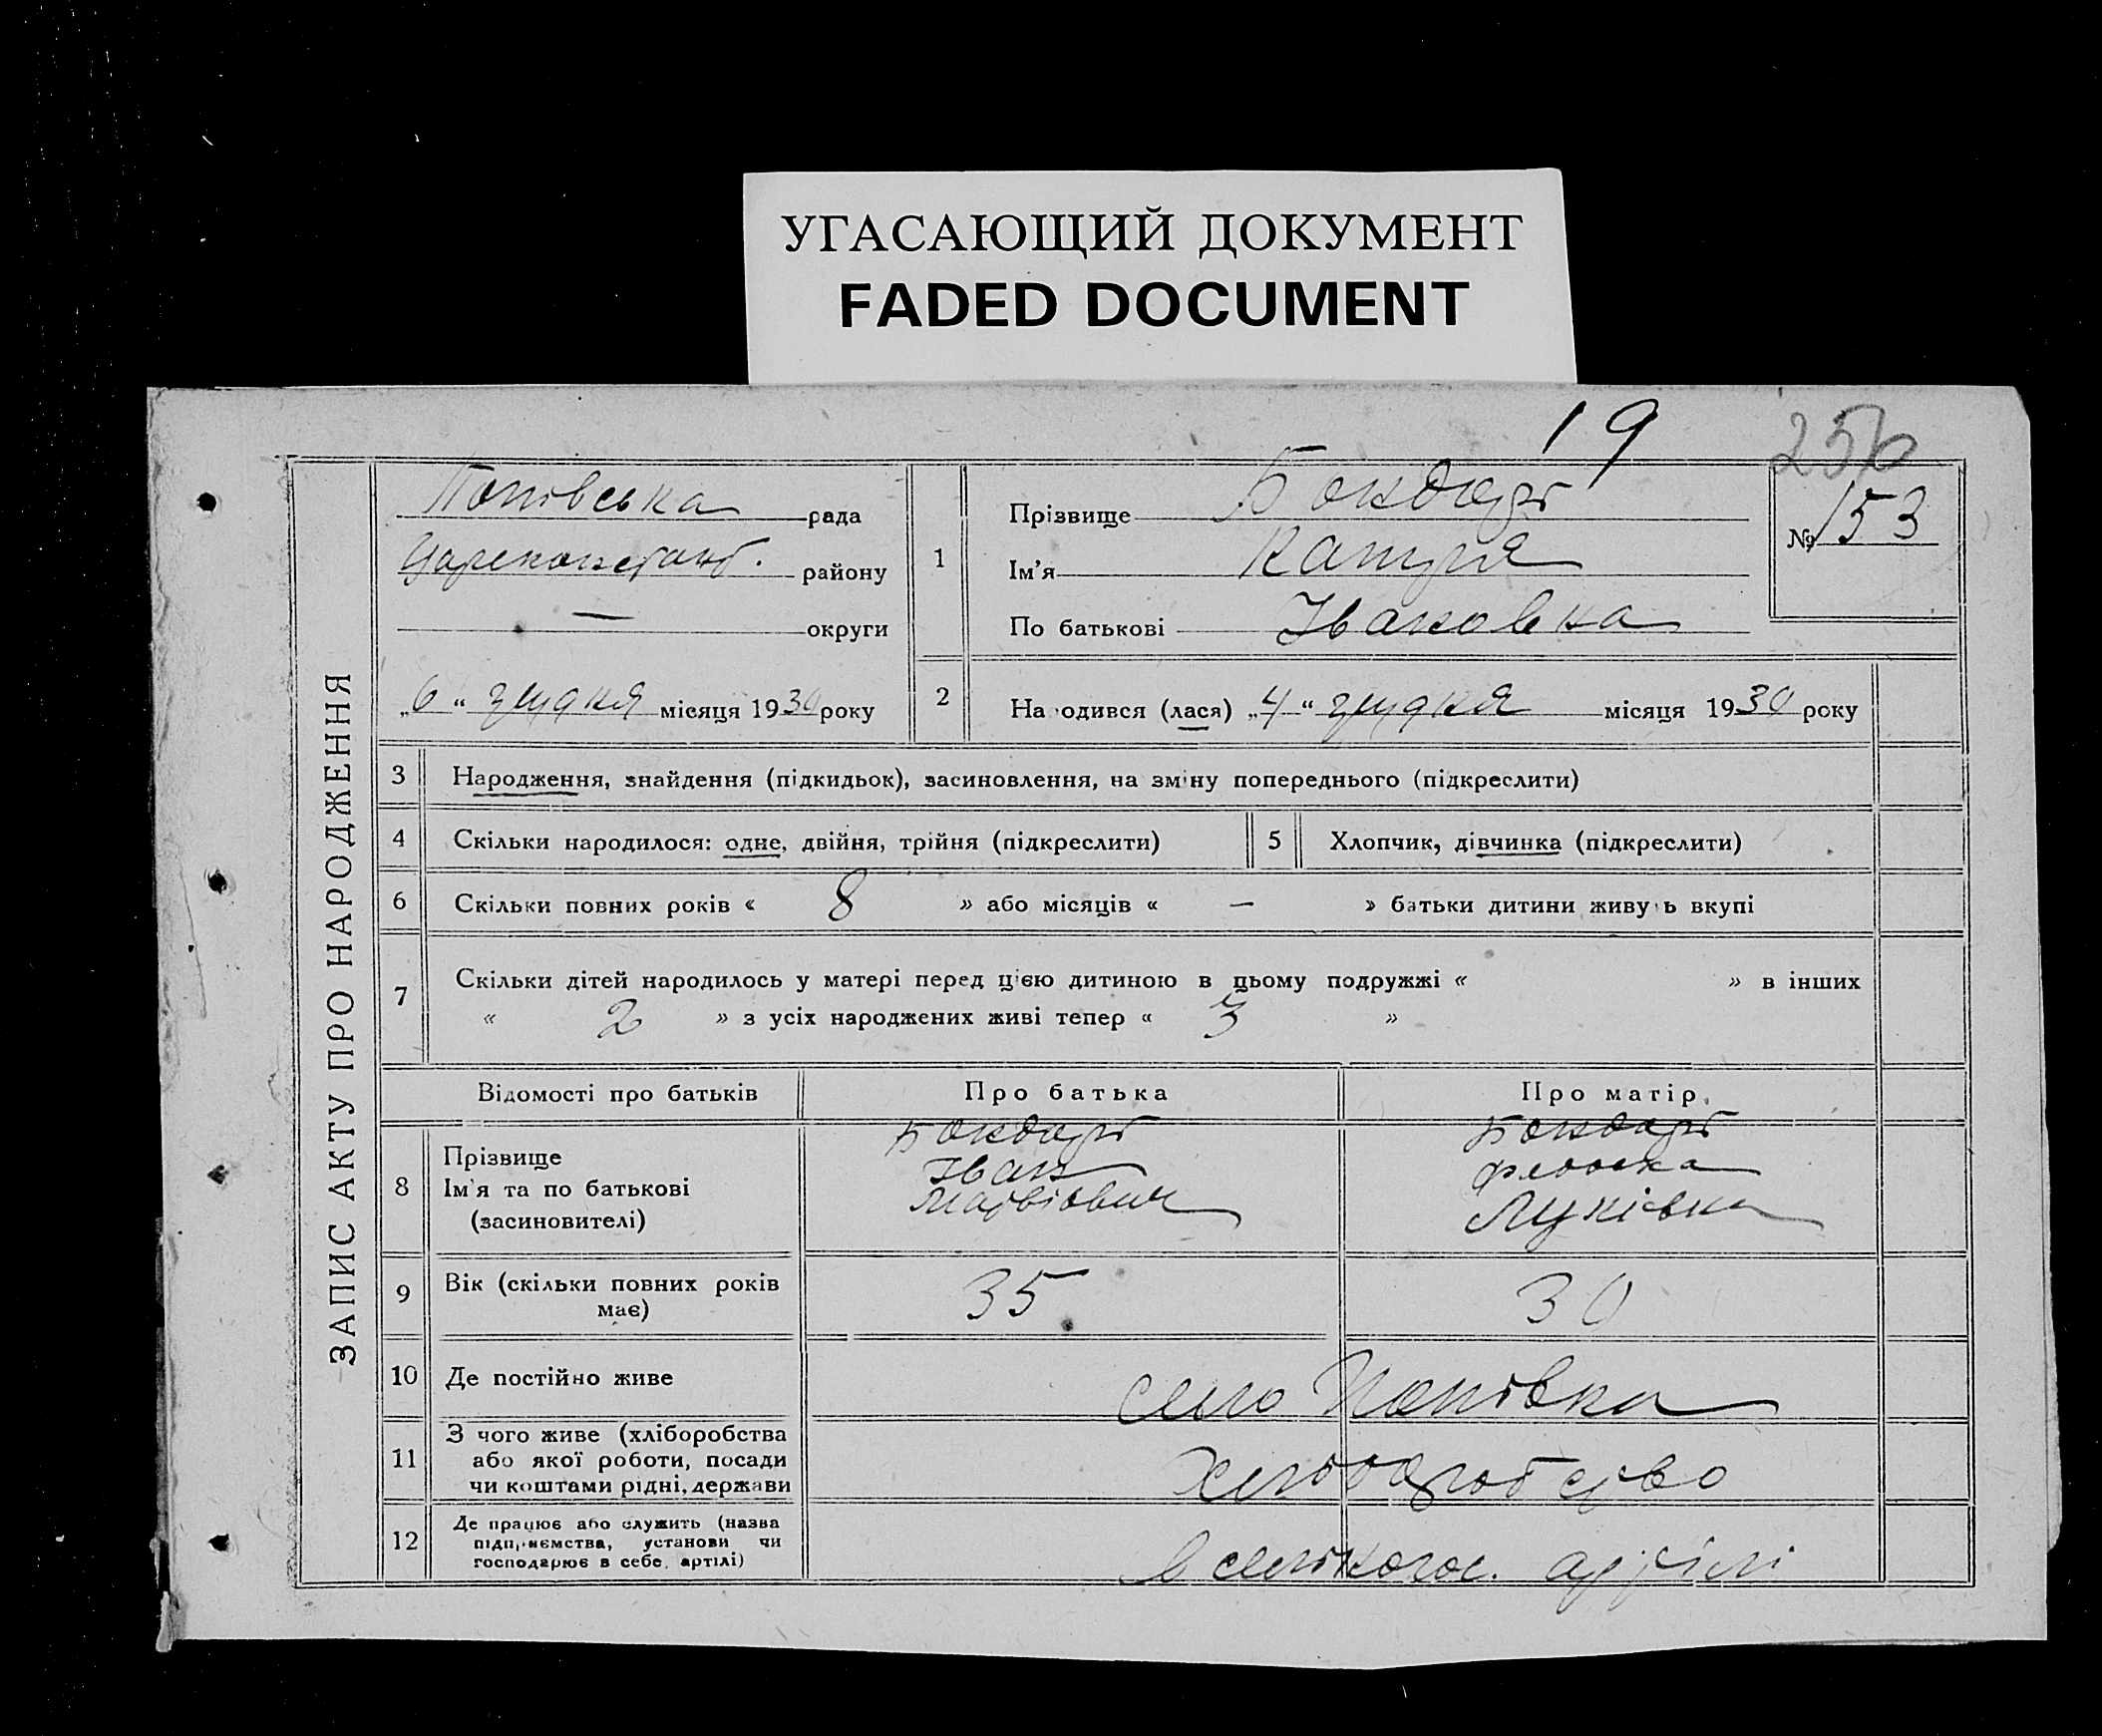 УГАСАЮЩИЙ ДОКУМЕНТ
FADED DOCUMENT
19
256
ЗАПИС АКТУ ПРО НАРОДЖЕННЯ
Попівська рада
Царекон район​у
— округи
„6“ грудня місяця 1930 року
1
Прізвище Бондарь
Ім'я Катря
По батькові Івановна
№ 153
2 На одився (лася) „4“ грудня місяця 1930 року
3 Народження, знайдення (підкидьок), засиновлення, на зміну попереднього (підкреслити)
4 Скільки народилося: одне, двійня, трійня (підкреслити)
5 Хлопчик, дівчинка (підкреслити)
6 Скільки повних років « 8 » або місяців « — » батьки дитини живу ь вкупі
7 Скільки дітей народилось у матері перед цією дитиною в цьому подружжі « » в інших
« 2 » з усіх народжених живі тепер « 3 »
Відомості про батьків
Про батька
Про матір
8
Прізвище
Ім'я та по батькові
(засиновителі)
Бондарь
Іван
Матвіович
Бондарь
Луківна
9
Вік (скільки повних років
має)
35
30
10 Де постійно живе
село Попівка
11
З чого живе (хліборобства
або якої роботи, посади
чи коштами рідні, держави
хліборобство
12
Де працює або служить (назва
підприємства, установи чи
господарює в себе, артілі)
в сількогос. артілі